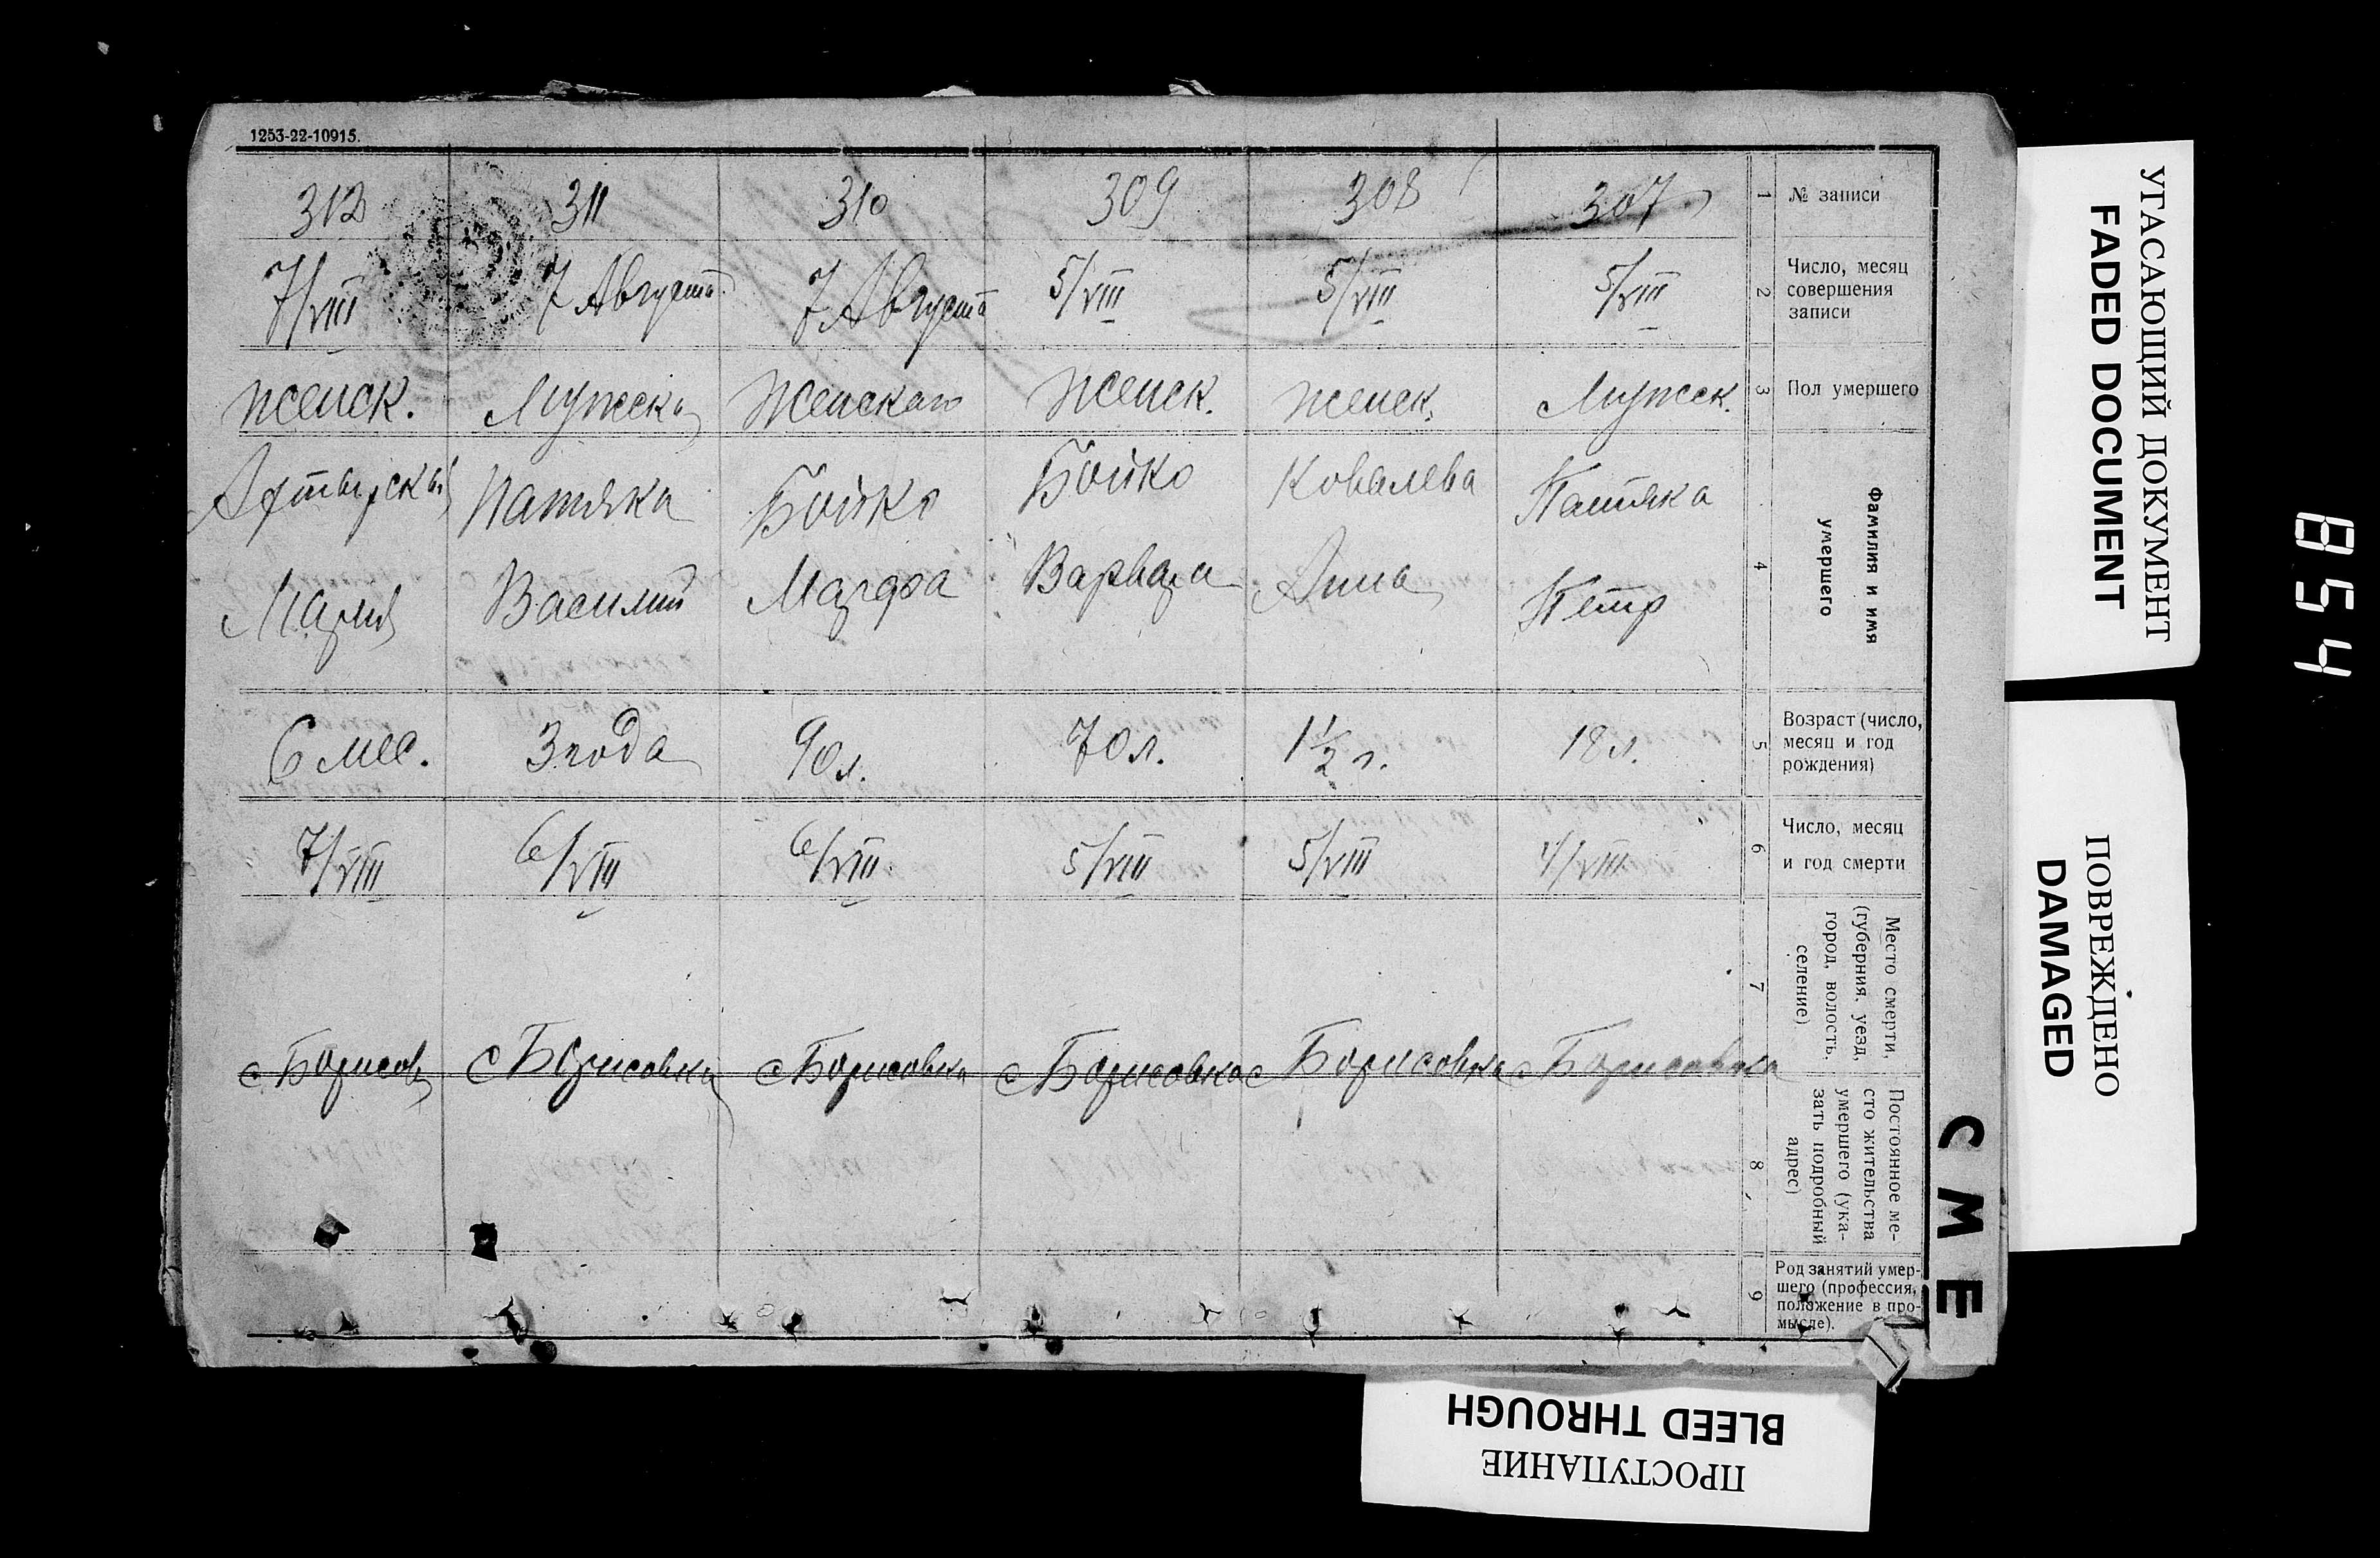 1253-22-10915.
312 311 310 309 308 307 1 № записи
7/VIII 7 Августа 7 Августа 5/VIII 5/VIII 5/VIII 2 Число, месяц
совершения
записи
женск. Мужска Женскаго женск. женск. Мужск. 3 Пол умершего
Ахтырская Патяка Бойко Бойко Ковалева Патяка 4 Фамилия и имя
умершего
Мария Василий Марфа Варвара Анна Петр
6 мес. 3 года 90 л. 70 л. 1 1/2 г. 18 л. 5 Возраст (число,
месяц и год
рождения)
7/VIII 6/VIII 6/VIII. 5/VIII 5/VIII 4/VIII 6 Число, месяц
и год смерти
7 Место смерти,
(губерния, уезд,
город, волость,
селение)
с Борисов с Борисовка с Борисовка с Борисовка с Борисовка с Борисовка
8 Постоянное ме-
сто жительства
умершего (ука-
зать подробный
адрес)
9 Род занятий умер-
шего (профессия,
положение в про-
мысле).
СМЕ
УГАСАЮЩИЙ ДОКУМЕНТ
FADED DOCUMENT
ПОВРЕЖДЕНО
DAMAGED
ПРОСТУПАНИЕ
BLEED THROUGH
854